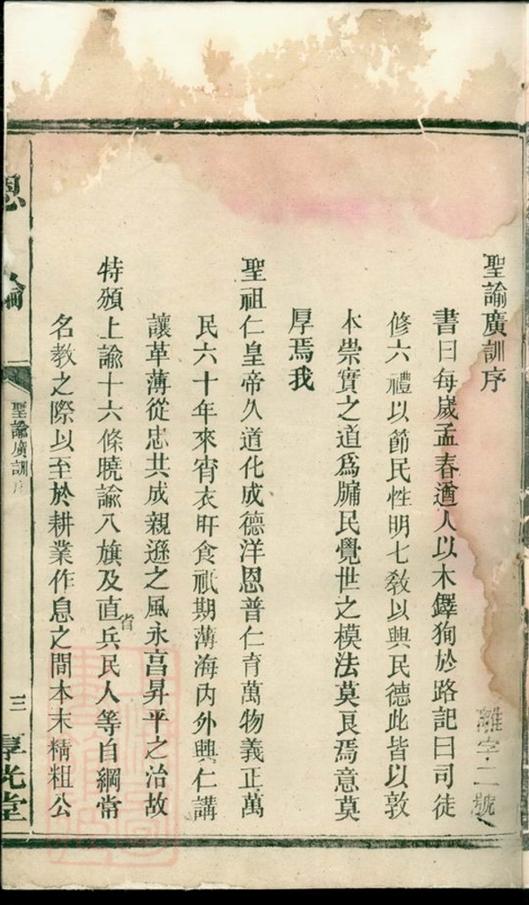 聖諭廣訓序
書曰每歲孟春遒人以木鐸狥於路記曰司徒
修六禮以節民性明七教以興民德此皆以敦
本崇實之道爲牖民覺世之模法莫良焉意莫
厚焉我
聖祖仁皇帝久道化成德洋恩普仁育萬物義正萬
民六十年來宵衣旰食祇期薄海內外興仁講
讓革薄從忠共成親遜之風永享昇平之治故
特頒上諭十六條曉諭八旗及直省兵民人等自綱常
名教之際以至於耕業作息之間本末精粗公
聖諭廣訓序
三
離字二號